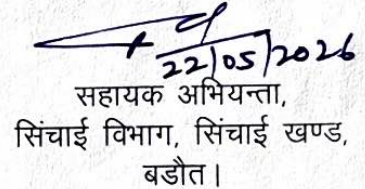 22/05/2026
सहायक अभियन्ता,
सिंचाई विभाग, सिंचाई खण्ड,
बडौत।